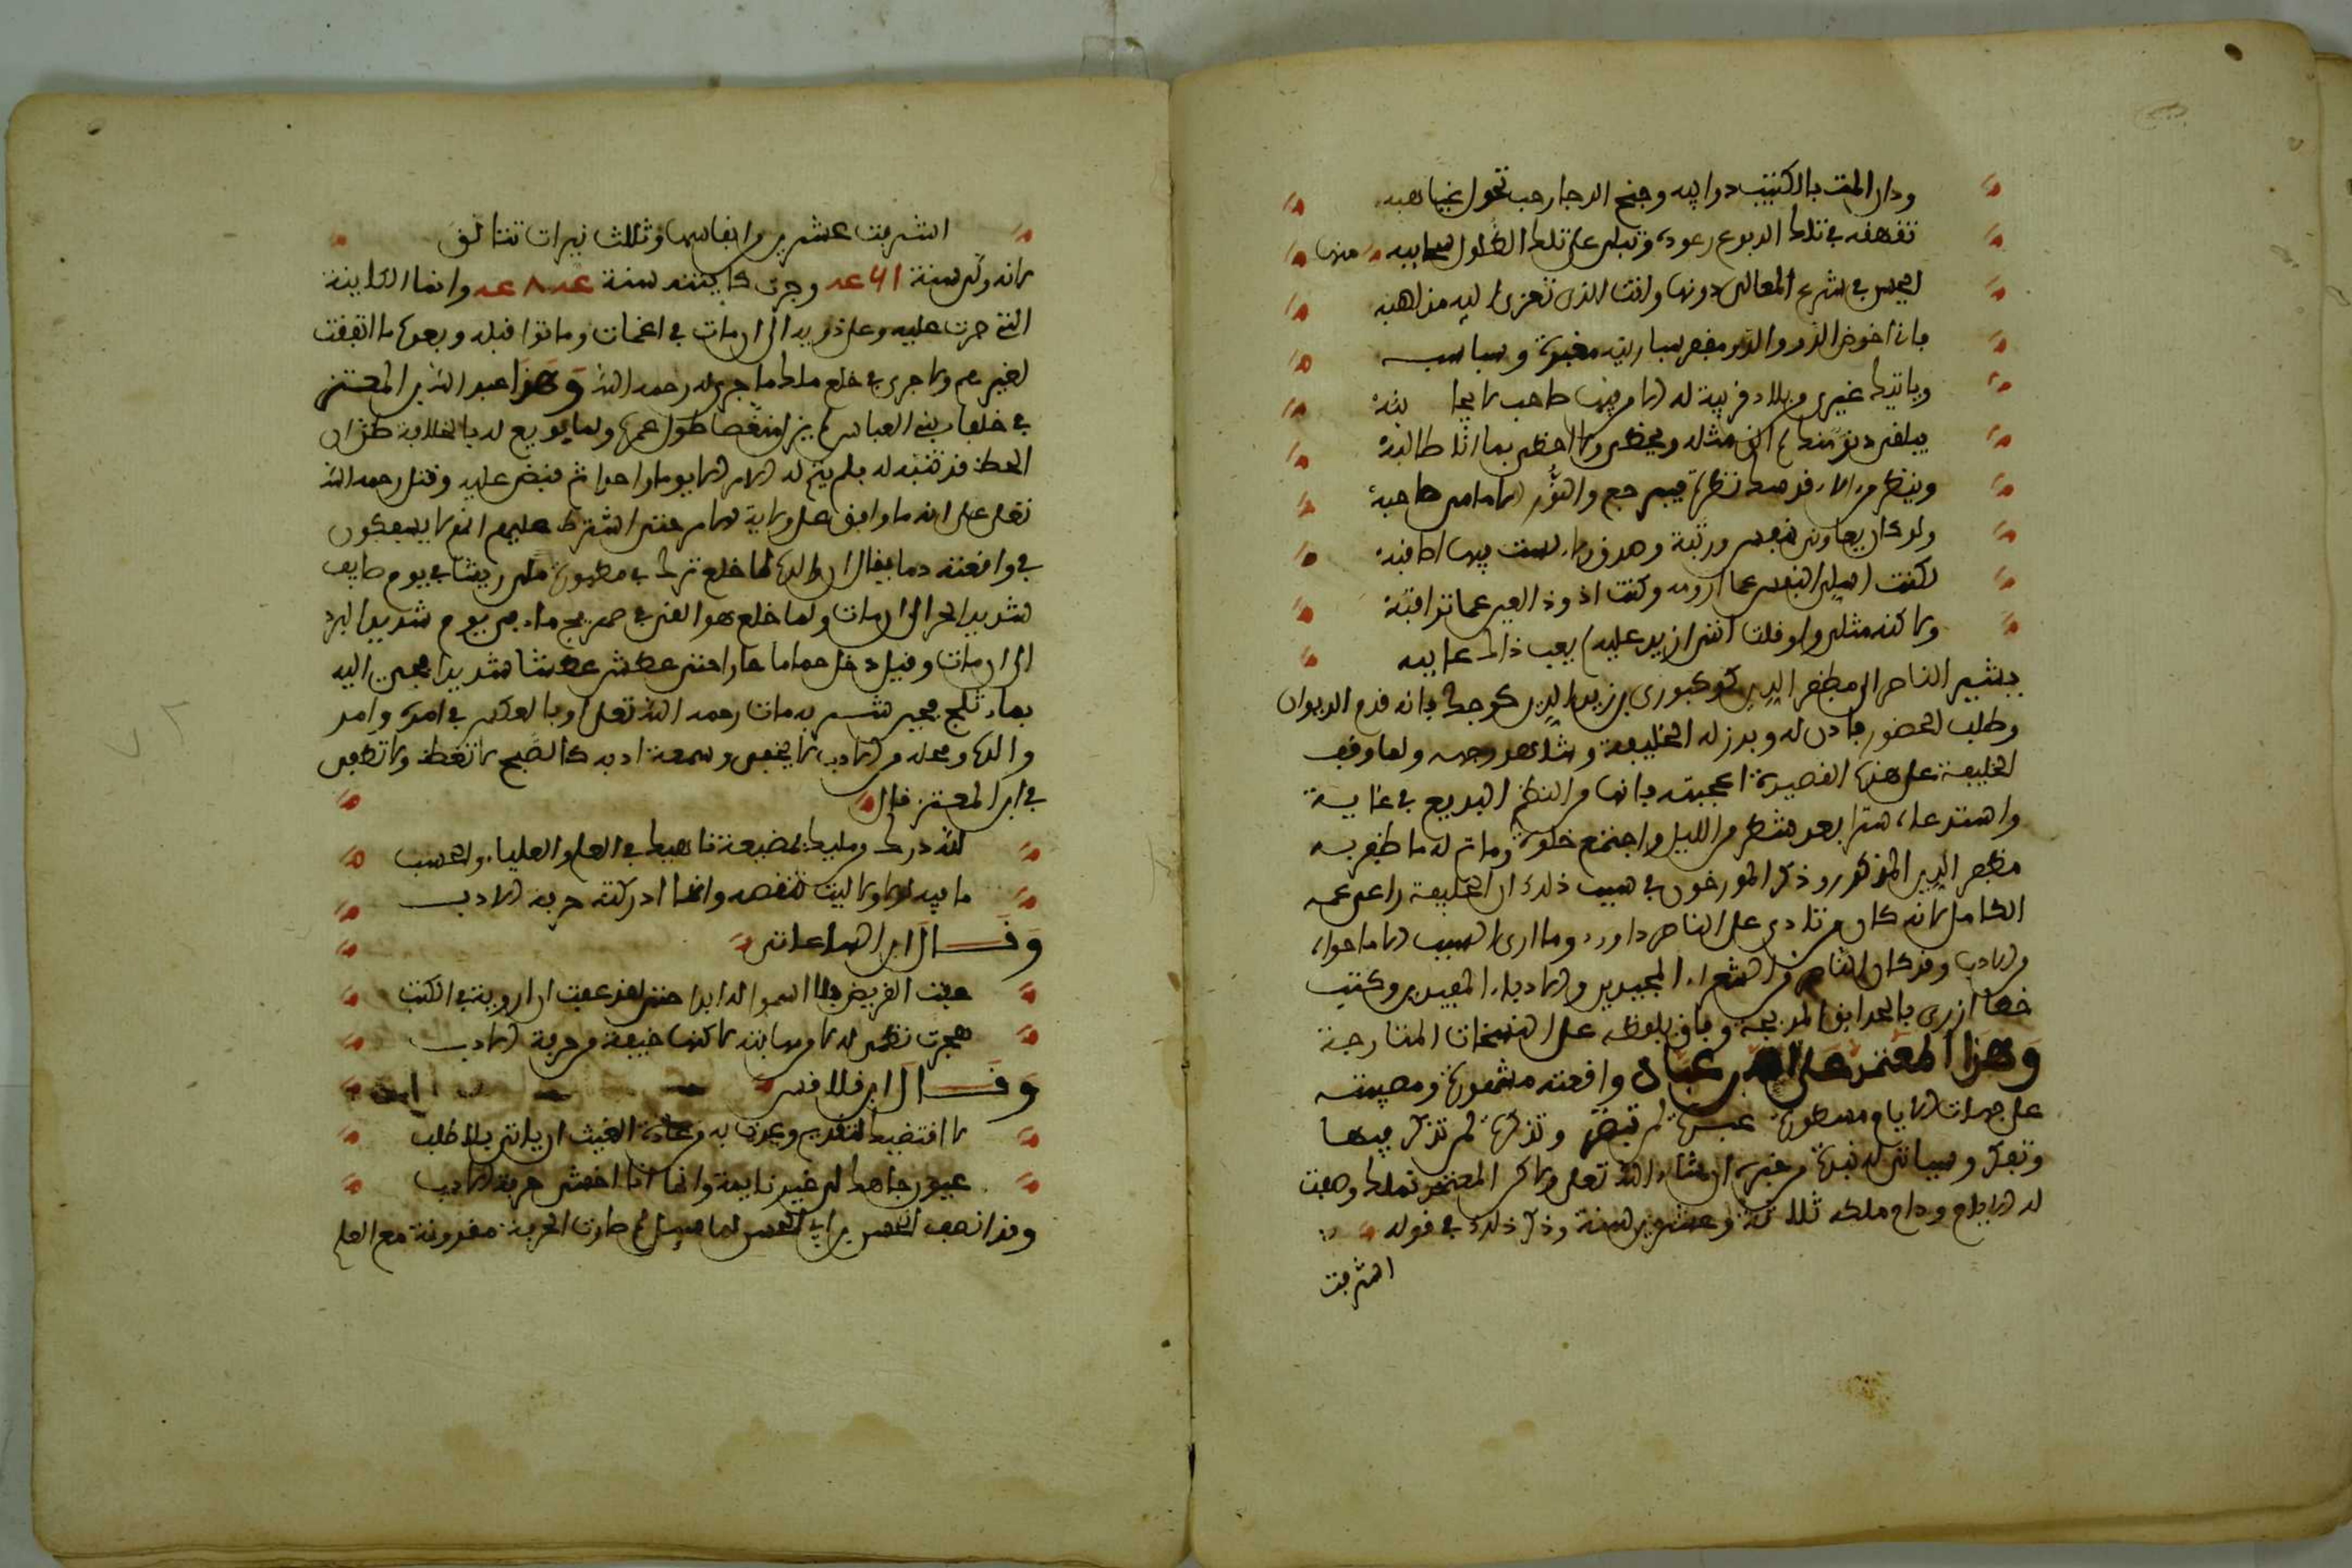 ودان المت بالكثيب ذوايبه وجنح الدجا رحب تجول غياهبه
تقهقه في تلك الربوع رعوده وتبكي على تلك الطلول سحايبه منها
ايحسن في شرع المعالي ودونها وانت الذي تعزى اليه مذاهبه
باني اخوض الدو والدو مقفر سباريته مغبرة وسباسبه
وياتيك غيري من بلاد قريبة له الامن فيها صاحب لا يجانبه
فيلقى دنوا منك لم الق مثله ويحظى ولا احظى بما انا طالبه
وينظر من لالاء قدسك نظرة فيرجع والنور الامامي صاحبه
ولو كان يعلوني بنفس ورتبة وصدق ولاء لست فيها اصاقبه
لكنت اسلي النفس عما ارومه وكنت اذود العين عما تراقبه
ولاكنه مثلي ولو قلت انني ازيد عليه لم يعب ذاك عايبه
يشير الناصر الى مظفر الدين كوكبوري بن زين الدين كوجك فانه قدم الديوان
وطلب الحضور فاذن له وبرز له الخليفة وشاهد وجهه ولما وقف
الخليفة على هذه القصيدة اعجبته فانها من النظم البديع في غاية
واستدعاه سرا بعد شطر من الليل واجتمع خلوة وما تم له ما ظفر به
مظفر الدين المذكور وذكر المورخون في سبب ذلك ان الخليفة راعى عمه
الكامل لانه كان على الناصر داود وما ارى السبب الا ما حواه
من الادب وقد كان الناصر من الشعراء المجيدين والادباء المفيدين وكتب
خطا ازرى بالحدايق المدبجة وفاق بلفظه على النسمات المتارجة
وهذا المعتمد على الله بن عباد واقعته مشهورة ومصيبته
على جبهات الايام مسطورة عبرة لم تبض وتذكرة لم تذكر فيها
وتفكر وسياتي له نبذة من خبره ان شاء الله تعلى ولاكن المعتمد تملك وصفت
له الايام ودام ملكه ثلاثة وعشرين سنة وذكر ذلك في قوله
اشرقت
اشرقت عشرين وانفاسها وثلث نيرات تتالق
لانه ولي سنة ٤٦١ وجرت كاينته سنة ٤٨٤ وانما الكاينة
التي جرت عليه وعلى ذويه الى ان مات في اغمات وماتوا قبله وبعده ما اتفقت
لغيرهم ولا جرى في خلع ملك ما جرى له رحمه الله وهذا عبد الله بن المعتز
في خلفاء بني العباس لم يزل منغصا طول عمره ولما بويع له بالخلافة ظن ان
الحظ قد تنبه له فلم يتم له الامر الا يوما واحدا ثم قبض عليه وقتل رحمه الله
تعلى على انه ما وافق على ولاية الامر حتى اشترط عليهم انهم لا يسفكون
في واقعته دما يقال ان والده لما خلع ترك في مطمورة ملئ ريشا في يوم صايف
شديد الحر الى ان مات ولما خلع هو القي في صهريج ماء في يوم شديد البرد
الى ان مات وقيل دخل حماما حارا حتى عطش عطشا شديدا فجيء اليه
بماء ثلج فحين شربه مات رحمه الله تعلى وبالعكس في امره وامر
والده ومحله من الادب لا يخفى وسمعة ادبه كالصبح لا تغطى ولا تطفى
في ابن المعتز قال
لله درك من ملك بمضيعة ناهيك في العلم والعلياء والحسب
ما فيه لولا ولا ليت تنقصه وانما ادركته حرفة الادب
وقال ابن الساعاتي
عفت القريض فلا اسمو له ابدا حتى لقد عفت ان ارويه في الكتب
هجرت نظمي له لا من مهانته لاكنها خيفة من حرفة الادب
وقال ابن قلاقس
لا اقتضيك لتقديم وعدت به من عادة الغيث ان ياتي بلا طلب
عيون جاهك لي غير نايمة وانما انا اخشى حرفة الادب
وقد انصف الحسن بن ابي الحسن لما سيل لم صارت الحرفة مقرونة مع العلم